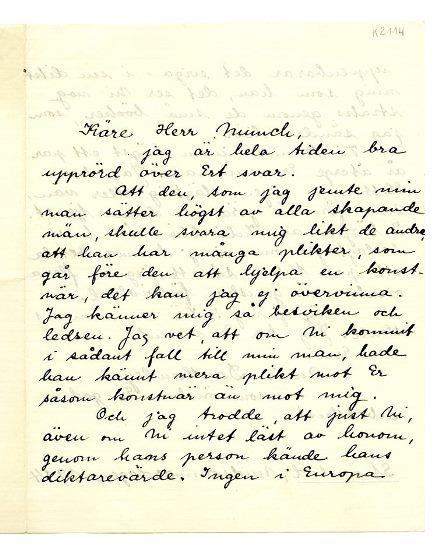 K2114
Käre Herr Munch,
jag är hela tiden bra
upprörd över Ert svar.
Att den, som jag jemte min
man sätter högst av alla skapande
män, skulle svara mig likt de andra,
att han har många plikter, som
går före den att hjelpa en konst-
när, det kan jag ej övervinna.
Jag känner mig så besviken och
ledsen. Jag vet, att om Ni kommit
i sådant fall till min man, hade
han kännt mera plikt mot Er
såsom konstnär än mot mig.
Och jag trodde, att just Ni,
även om Ni intet läst av honom,
genom hans person kände hans
diktarevärde. Ingen i Europa